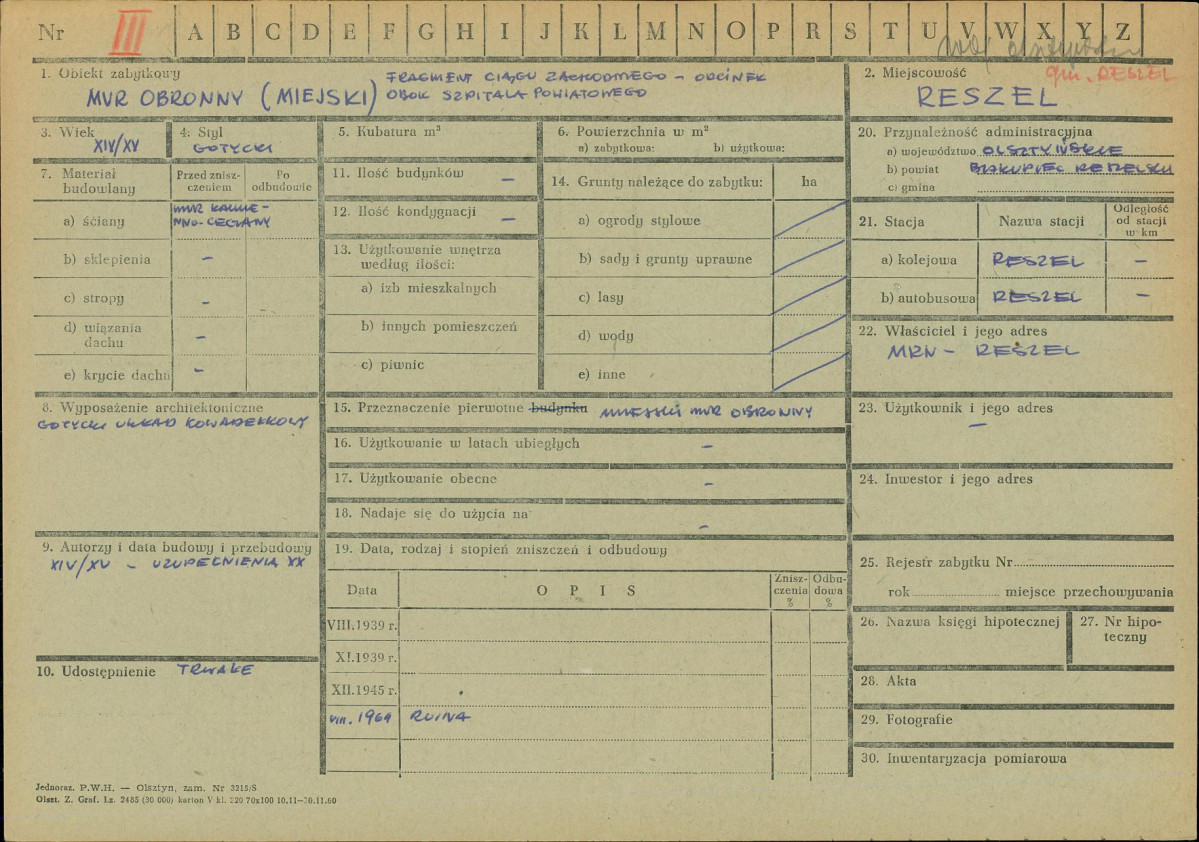 Nr III A B C D E F G H I J K L M N O P R S T U V W X Y Z
gm. RESZEL
1. Obiekt zabytkowy
MUR OBRONNY (MIEJSKI) FRAGMENT CIĄGU ZACHODNIEGO – ODCINEK
OBOK SZPITALA POWIATOWEGO
2. Miejscowość
RESZEL
3. Wiek
XIV/XV
4. Styl
GOTYCKI
5. Kubatura m³
6. Powierzchnia w m²
a) zabytkowa: b) użytkowa:
7. Materiał
budowlany
Przed znisz-
czeniem
Po
odbudowie
a) ściany
MUR KAMIE-
NNO-CEGLANY
b) sklepienia –
c) stropy –
d) wiązania
dachu –
e) krycie dachu –
8. Wyposażenie architektoniczne
GOTYCKI UKŁAD KOWADEŁKOWY
9. Autorzy i data budowy i przebudowy
XIV/XV – UZUPEŁNIENIA XX
10. Udostępnienie TRWAŁE
11. Ilość budynków –
12. Ilość kondygnacji –
13. Użytkowanie wnętrza
według ilości:
a) izb mieszkalnych
b) innych pomieszczeń
c) piwnic
14. Grunty należące do zabytku: ha
a) ogrody stylowe
b) sady i grunty uprawne
c) lasy
d) wody
e) inne
15. Przeznaczenie pierwotne budynku MIEJSKI MUR OBRONNY
16. Użytkowanie w latach ubiegłych –
17. Użytkowanie obecne –
18. Nadaje się do użycia na –
19. Data, rodzaj i stopień zniszczeń i odbudowy
Data OPIS Znisz-
czenia
%
Odbu-
dowa
%
VIII.1939 r.
XI.1939 r.
XII.1945 r.
VIII. 1969 RUINA
20. Przynależność administracyjna
a) województwo OLSZTYŃSKIE
b) powiat BISKUPIEC RESZELSKI
c) gmina
21. Stacja Nazwa stacji Odległość
od stacji
w km
a) kolejowa RESZEL –
b) autobusowa RESZEL –
22. Właściciel i jego adres
MRN – RESZEL
23. Użytkownik i jego adres
–
24. Inwestor i jego adres
25. Rejestr zabytku Nr
rok miejsce przechowywania
26. Nazwa księgi hipotecznej
27. Nr hipo-
teczny
28. Akta
29. Fotografie
30. Inwentaryzacja pomiarowa
Jednoraz. P.W.H. — Olsztyn, zam. Nr 3215/S
Olszt. Z. Graf. Lz. 2485 (30 000) karton V kl. 220 70x100 10.11—30.11.60